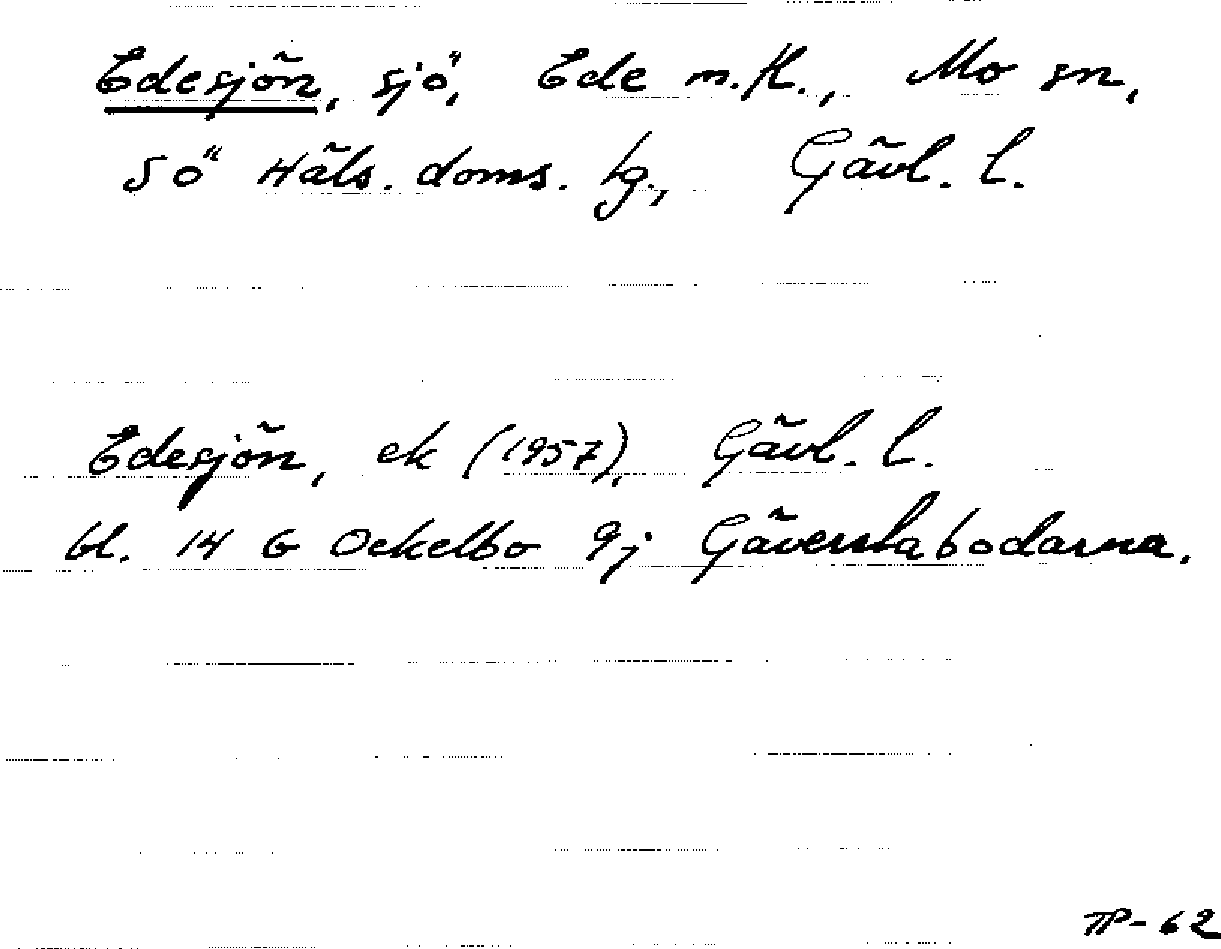 Edesjön, sjö, Ede m.fl., Mo sn,
Sö Häls. doms. tg., Gävl. l.
Edesjön, ek (1957), Gävl. l.
bl. 14 G Ockelbo 9j Gäverstabodarna.
TP-62